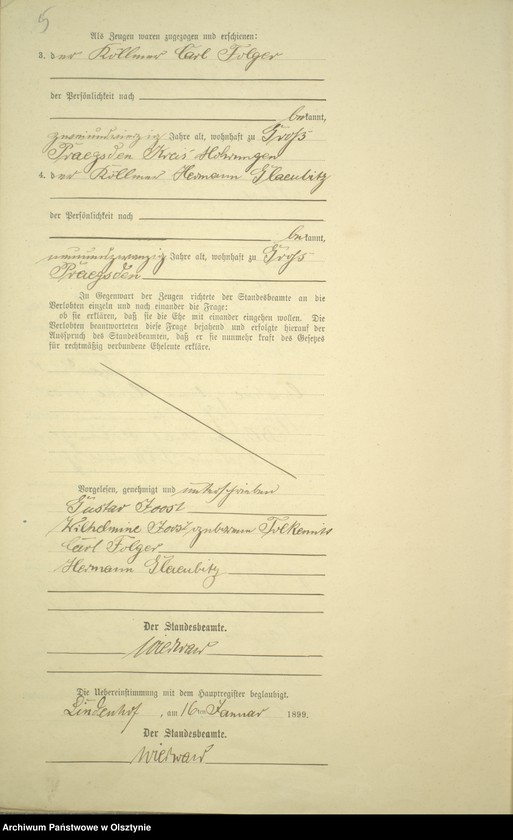 Als Zeugen waren zugezogen und erschienen:
3. der Köllmer Carl Folger
der Persönlichkeit nach
bekannt,
Jahre alt, wohnhaft zu Groß
Praegsden Kreis Mohrungen
4. der Köllmer Hermann Glaeubitz
der Persönlichkeit nach
bekannt,
neunundzwanzig Jahre alt, wohnhaft zu Groß
Praegsden
In Gegenwart der Zeugen richtete der Standesbeamte an die
Verlobten einzeln und nach einander die Frage:
ob sie erklären, daß sie die Ehe mit einander eingehen wollen. Die
Verlobten beantworteten diese Frage bejahend und erfolgte hierauf der
Ausspruch des Standesbeamten, daß er sie nunmehr kraft des Gesetzes
für rechtmäßig verbundene Eheleute erkläre.
Vorgelesen, genehmigt und unterschrieben
Gustav Joost
Wilhelmine Joost geborene Tolkemitt
Carl Folger
Hermann Glaeubitz
Der Standesbeamte.
Die Uebereinstimmung mit dem Hauptregister beglaubigt.
Lindenhof, am 16ten Januar 1899.
Der Standesbeamte.
Archiwum Państwowe w Olsztynie